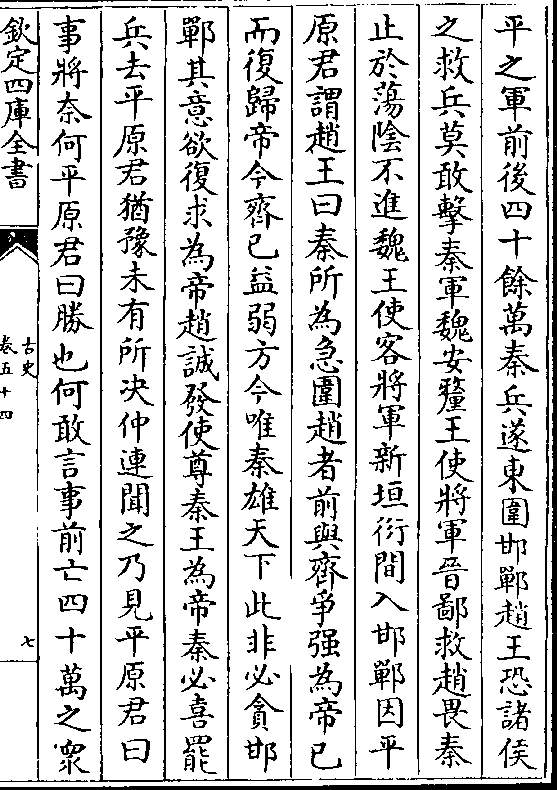 平之軍前後四十餘萬秦兵遂東圍邯鄲趙王恐諸侯
之救兵莫敢擊秦軍魏安釐王使將軍晉鄙救趙畏秦
止於蕩陰不進魏王使客將軍新垣衍間入邯鄲因平
原君謂趙王曰秦所為急圍趙者前與齊爭强為帝已
而復歸帝今齊已益弱方今唯秦雄天下此非必貪邯
鄲其意欲復求為帝趙誠發使尊秦王為帝秦必喜罷
兵去平原君猶豫未有所决仲連聞之乃見平原君曰
事將奈何平原君曰勝也何敢言事前亡四十萬之衆
欽定四庫全書
古史
卷五十四
七